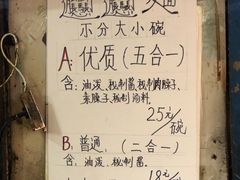 𰻝𰻝面
不分大小碗
A:优质(五合一)
含:油泼、秘制酱、秘制肉臊子、
素臊子、秘制汤料。
25元/碗
B:普通,(二合一)
含:油泼、秘制酱。
18元